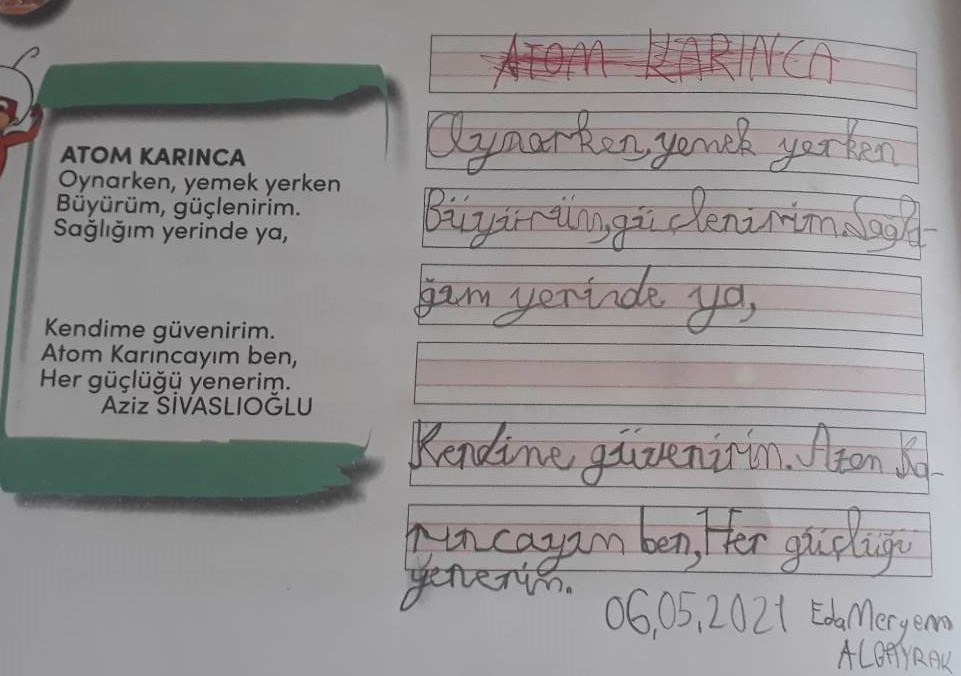 ATOM KARINCA
Oynarken, yemek yerken
Büyürüm, güçlenirim.
Sağlığım yerinde ya,
Kendime güvenirim.
Atom Karıncayım ben,
Her güçlüğü yenerim.
Aziz SİVASLIOĞLU
ATOM KARINCA
Oynarken, yemek yerken
Büyürüm, güçlenirim. Sağlı-
ğım yerinde ya,
Kendine güvenirin. Aton Ka-
rıncayım ben, Her güçlüğü
yenerim.
06,05,2021 Eda Meryem
ALBAYRAK